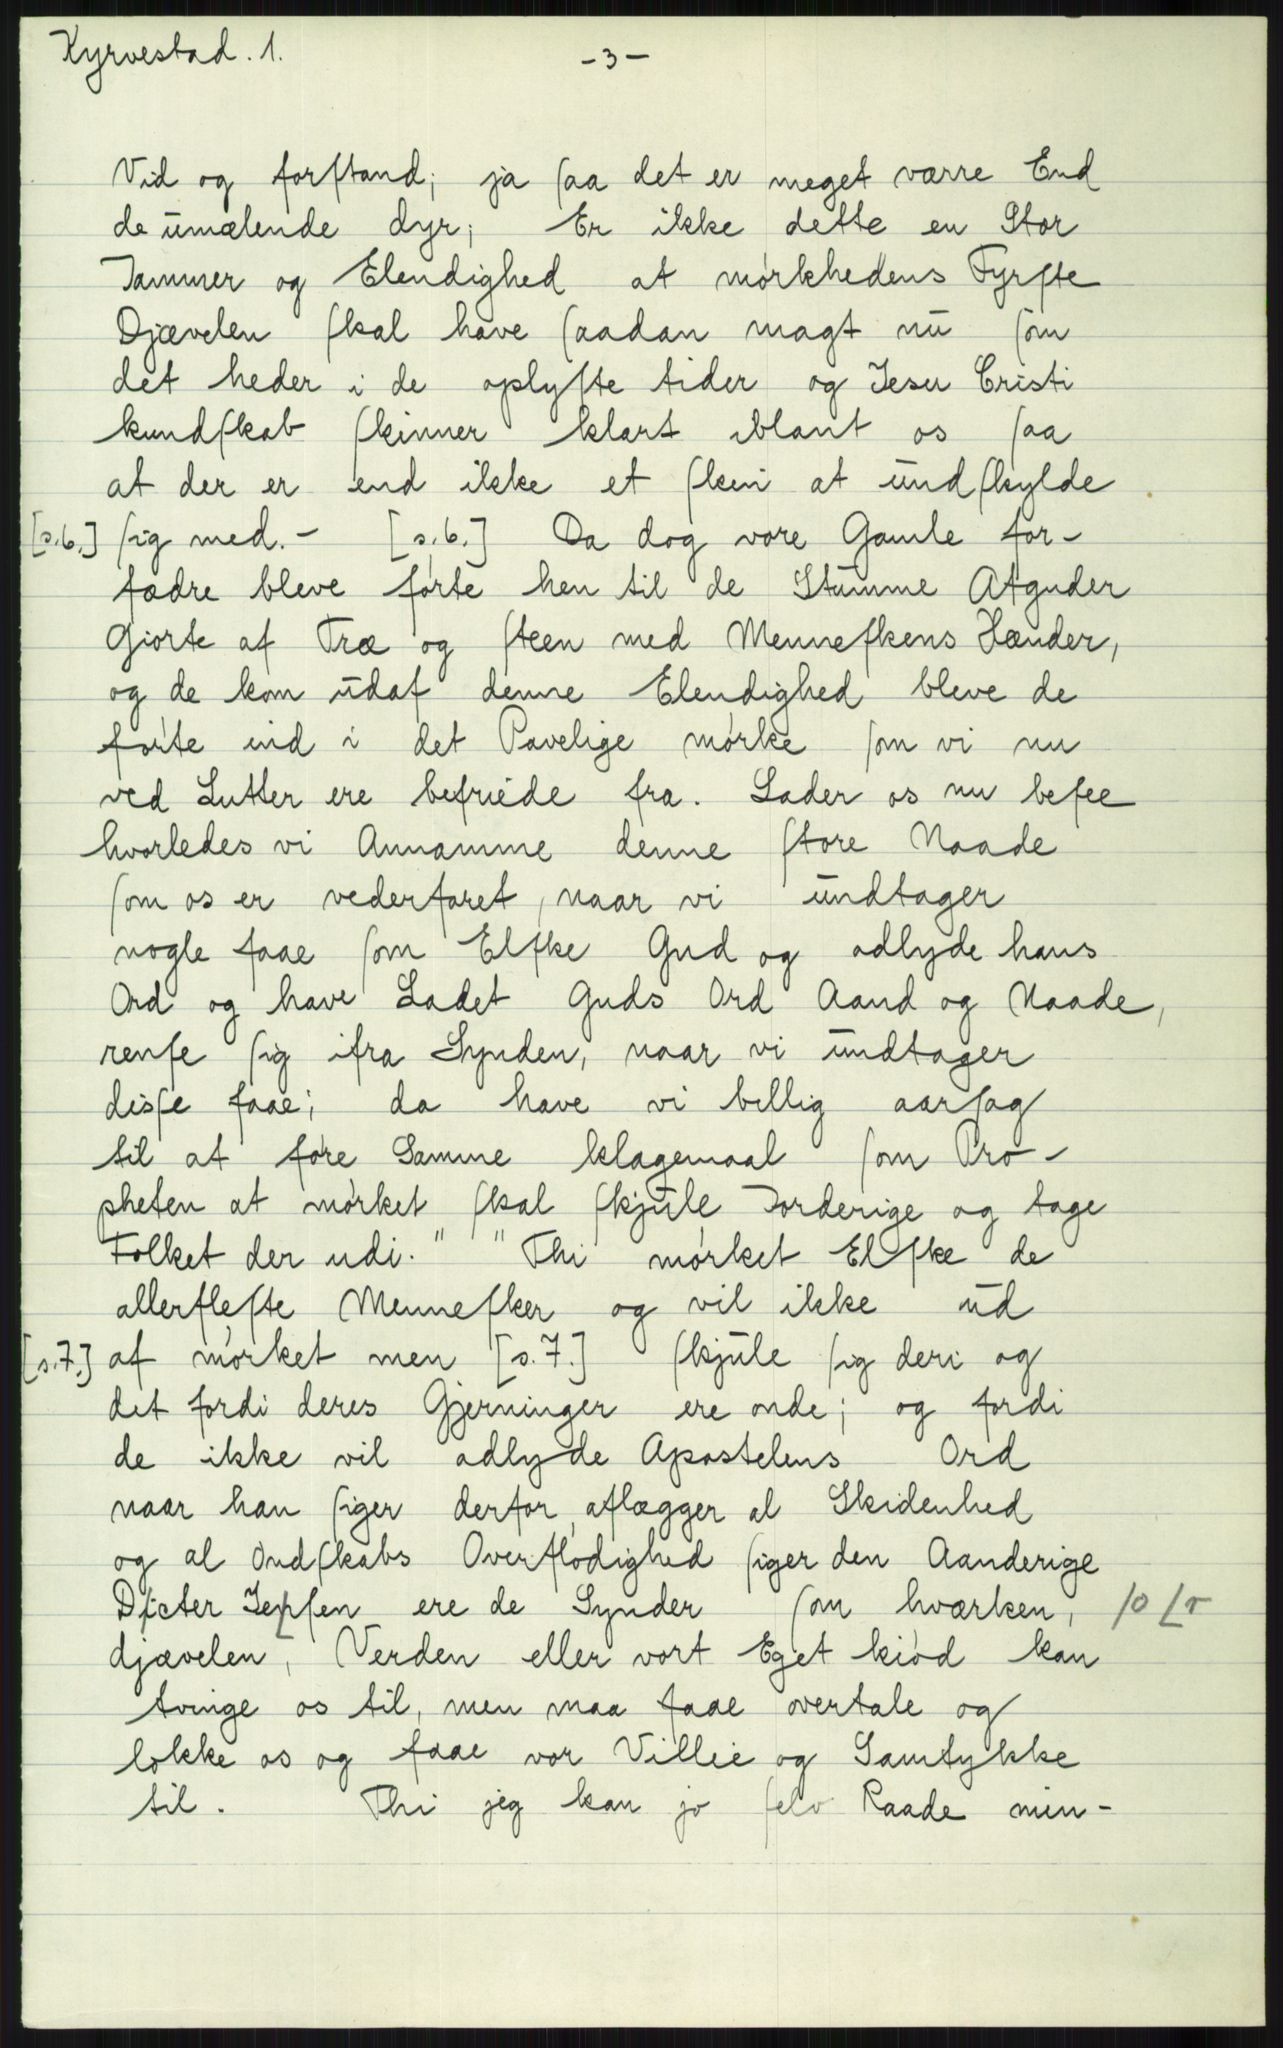 Kyrvestad. 1.
-3-
Vid og forſtand; ja ſaa det er meget værre End
de umælende dyr; Er ikke dette en Stor
Jammer og Elendighed at mørkhedens Fyrſte
Djævelen ſkal have ſaadan magt nu ſom
det heder i de oplyſte tider og Jesu Cristi
kundſkab ſkinner klart iblant os ſaa
at der er end ikke et ſkin at undſkylde
[s.6.] ſig med.- [s.6.] Da dog vore Gamle for-
fædre bleve førte hen til de Stumme Afguder
Giorte af Træ og ſteen med Menneſkens Hænder,
og de kom udaf denne Elendighed bleve de
førte ind i det Pavelige mørke ſom vi nu
ved Lutter ere befriede fra. Lader os nu beſee
hvorledes vi Annamme denne ſtore Naade
ſom os er vederfaret, naar vi undtager
nogle faae ſom Elſke Gud og adlyde hans
Ord og have Ladet Guds Ord Aand og Naade,
renſe ſig ifra Synden, naar vi undtager
disſe faae; da have vi billig aarſag
til at føre Samme klagemaal ſom Pro-
pheten at mørket ſkal ſkjule Jorderige og tage
Folket der udi." "Thi mørket Elſke de
allerfleſte Menneſker og vil ikke ud
[s.7.] af mørket men [s.7.] ſkjule ſig deri og
det fordi deres Gjerninger ere onde; og fordi
de ikke vil adlyde Apostelens Ord
naar han ſiger derfor, aflægger al Skidenhed
og al Ondſkabs Overflødighed ſiger den Aanderige
Dicter Jepſen ere de Synder ſom hværken, /o ⌊r
djævelen, Verden eller vort Eget kiød kan
tvinge os til, men maa faae overtale og
lokke os og faae vor Villie og Samtykke
til. Thi jeg kan jo ſelv Raade min-